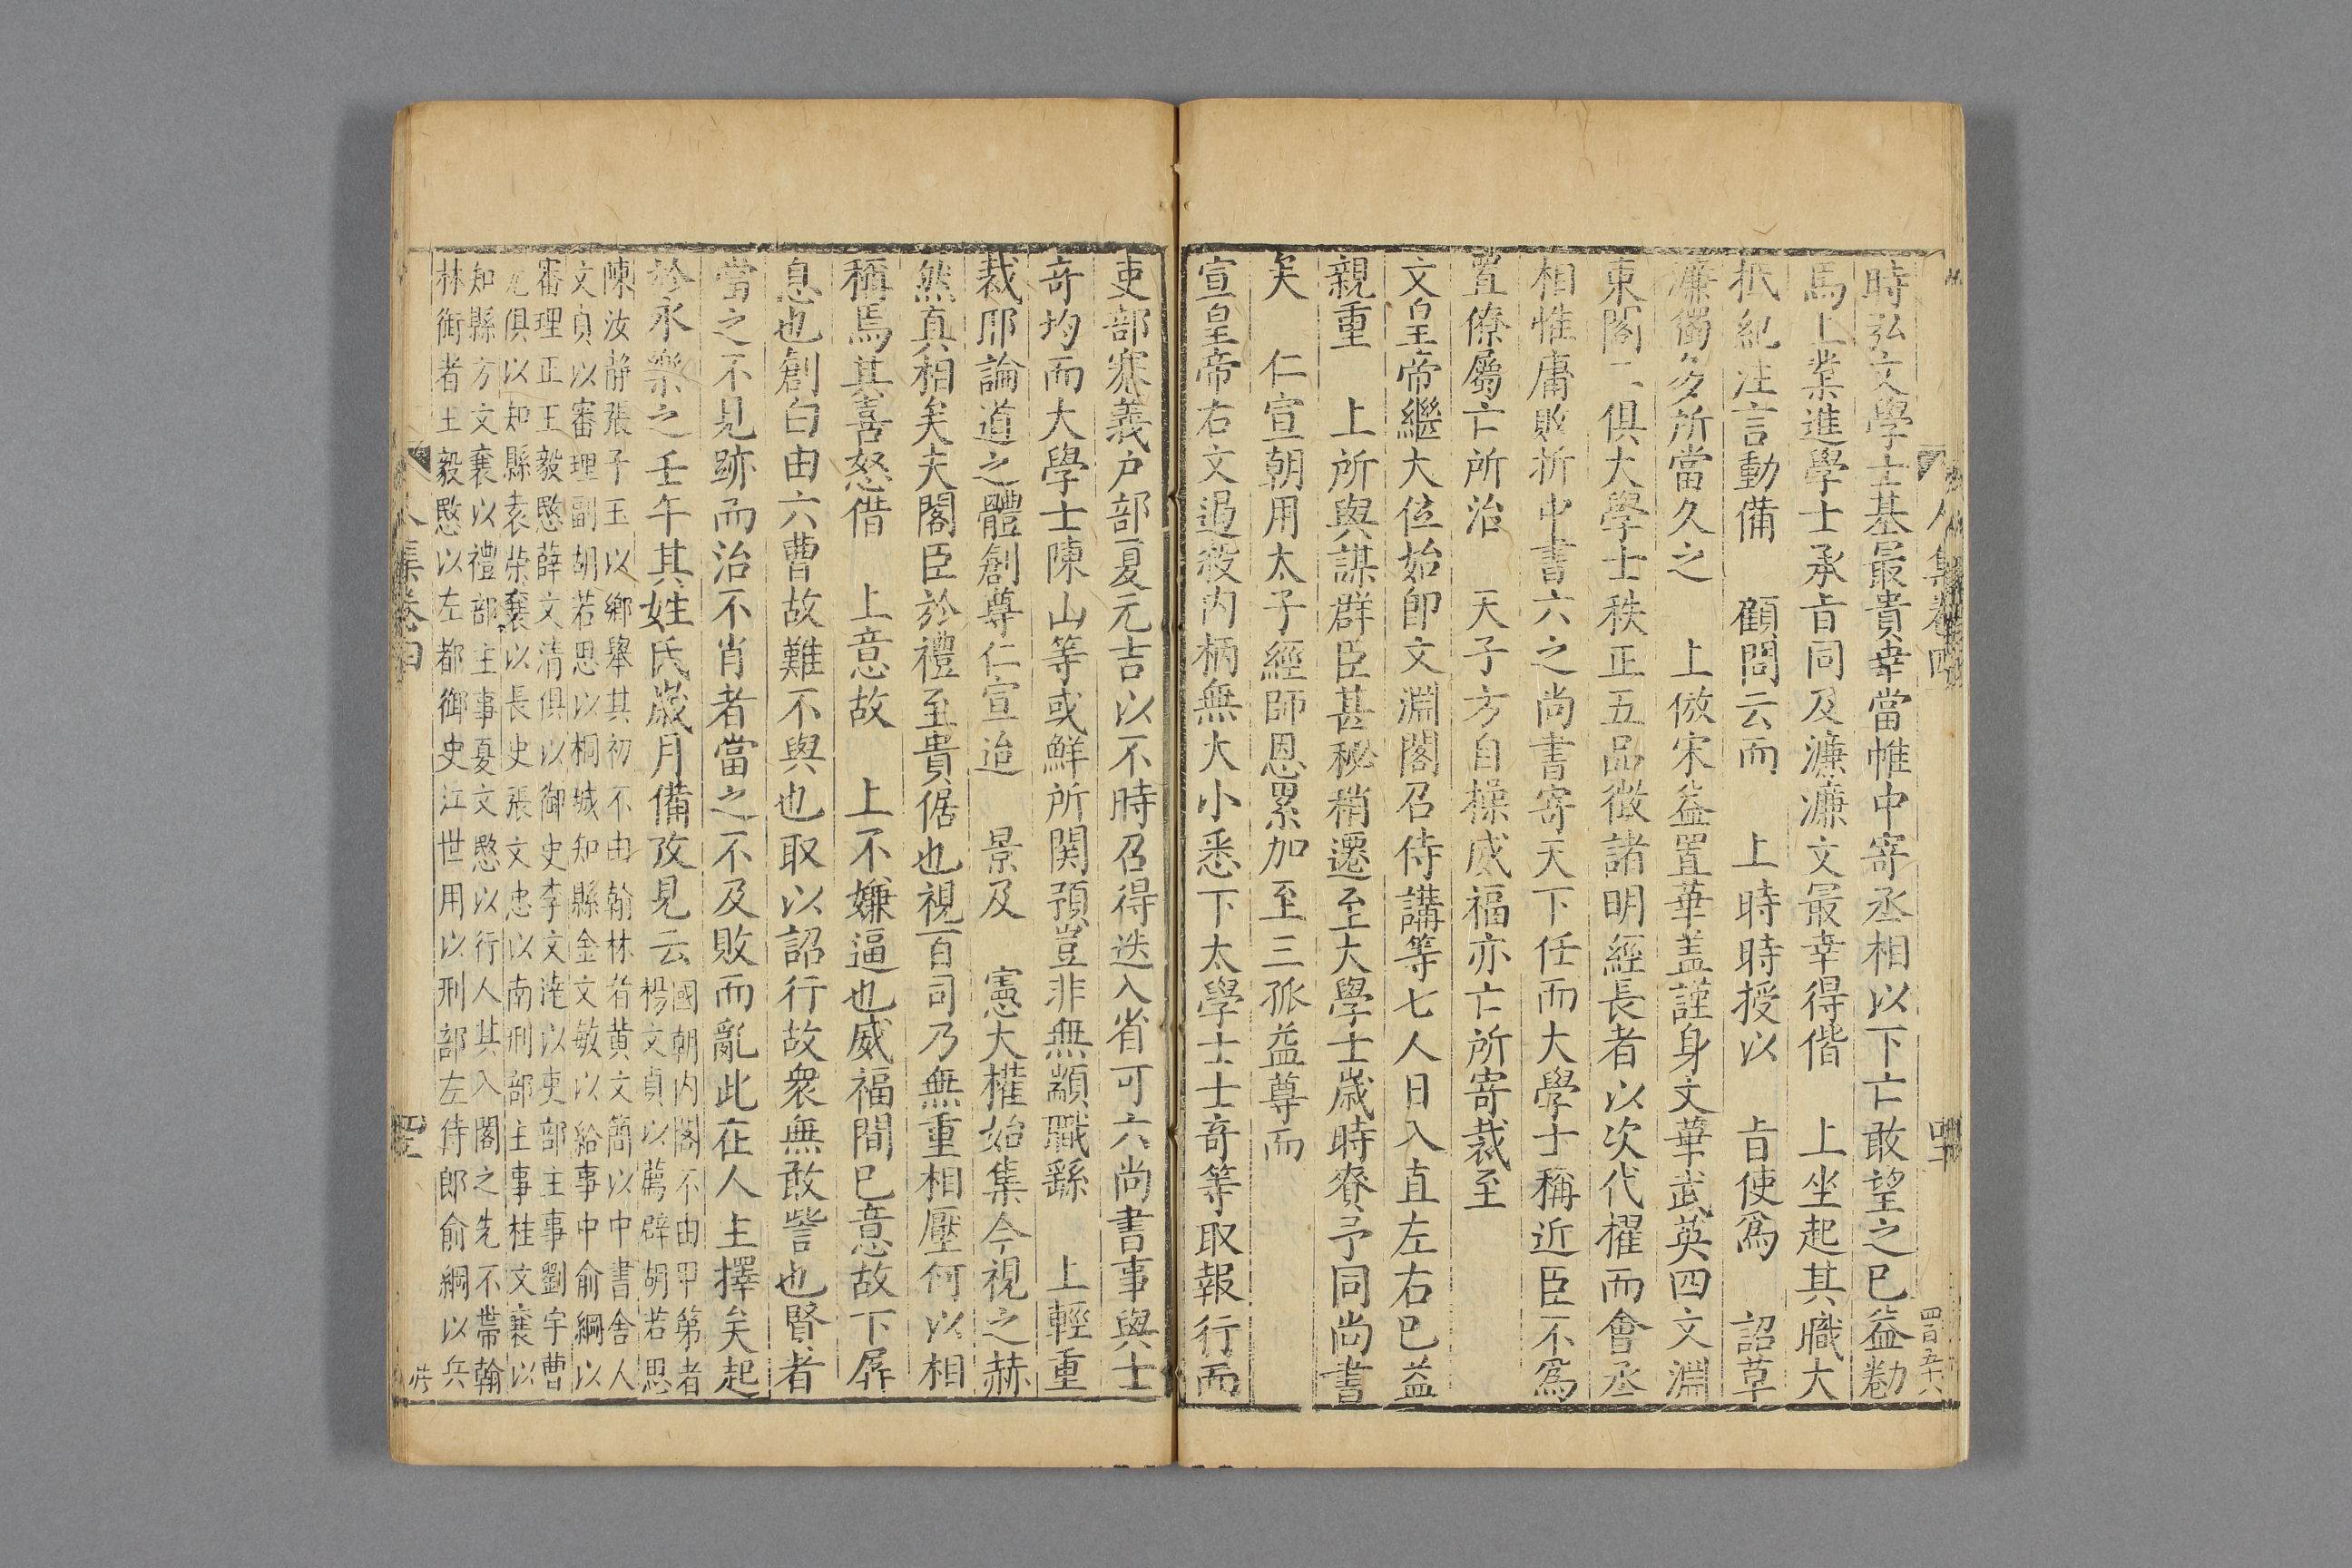 時弘文學士基最貴幸當帷中寄丞相以下亡敢望之已益勸
馬上業進學士承旨同及濂濂文最幸得偕　上坐起其職大
抵紀注言動備　顧問云而　上時時授以　旨使爲　詔草
濂獨多所當久之　上倣宋益置華盖謹身文華武英四文淵
東閣二俱大學士秩正五品徵諸明經長者以次代擢而會丞
相惟庸敗析中書六之尚書寄天下任而大學士稱近臣不爲
置僚屬亡所治　天子方自操威福亦亡所寄裁至
文皇帝繼大位始卽文淵閣召侍講等七人日入直左右已益
親重　上所與謀群臣甚秘稍遷至大學士歲時賚予同尚書
矣　仁宣朝用太子經師恩累加至三孤益尊而
宣皇帝右文過殺內柄無大小悉下太學士士奇等取報行而
吏部蹇義戶部夏元吉以不時召得迭入省可六尚書事與士
奇均而大學士陳山等或鮮所関預豈非無顓職繇　上輕重
裁耶論道之體創尊仁宣迨　景及　憲大權始集今視之赫
然真相矣夫閣臣於禮至貴倨也視百司乃無重相壓何以相
稱焉其喜怒借　上意故　上不嫌逼也威福間已意故下屏
息也創白由六曹故難不與也取以詔行故衆無敢訾也賢者
當之不見跡而治不肖者當之不及敗而亂此在人主擇矣起
於永樂之壬午其姓氏歲月備攷見云
國朝內閣不由甲第者
楊文貞以薦辟胡若思
陳汝静張子玉以鄉舉其初不由翰林者黃文簡以中書舍人
文貞以審理副胡若思以桐城知縣金文敏以給事中俞綱以
審理正王毅愍薛文清俱以御史李文達以吏部主事劉宇曹
元俱以知縣袁榮襄以長史張文忠以南刑部主事桂文襄以
知縣方文襄以禮部主事夏文愍以行人其入閣之先不帶翰
林銜者王毅愍以左都御史江世用以刑部左侍郎俞綱以兵
人集卷四
四百五十六